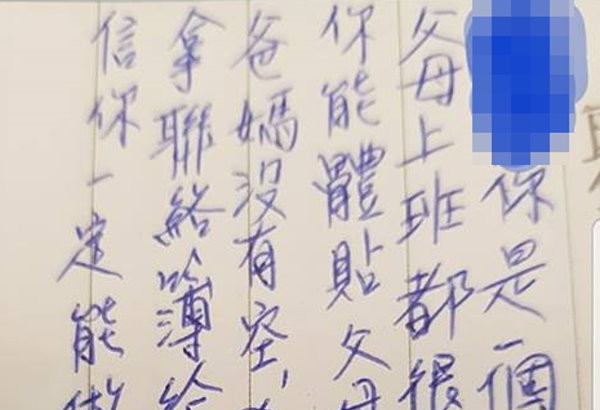 你是一個
父母上班都很
你能體貼父母
爸媽沒有空,
拿聯絡簿給
信你一定能做